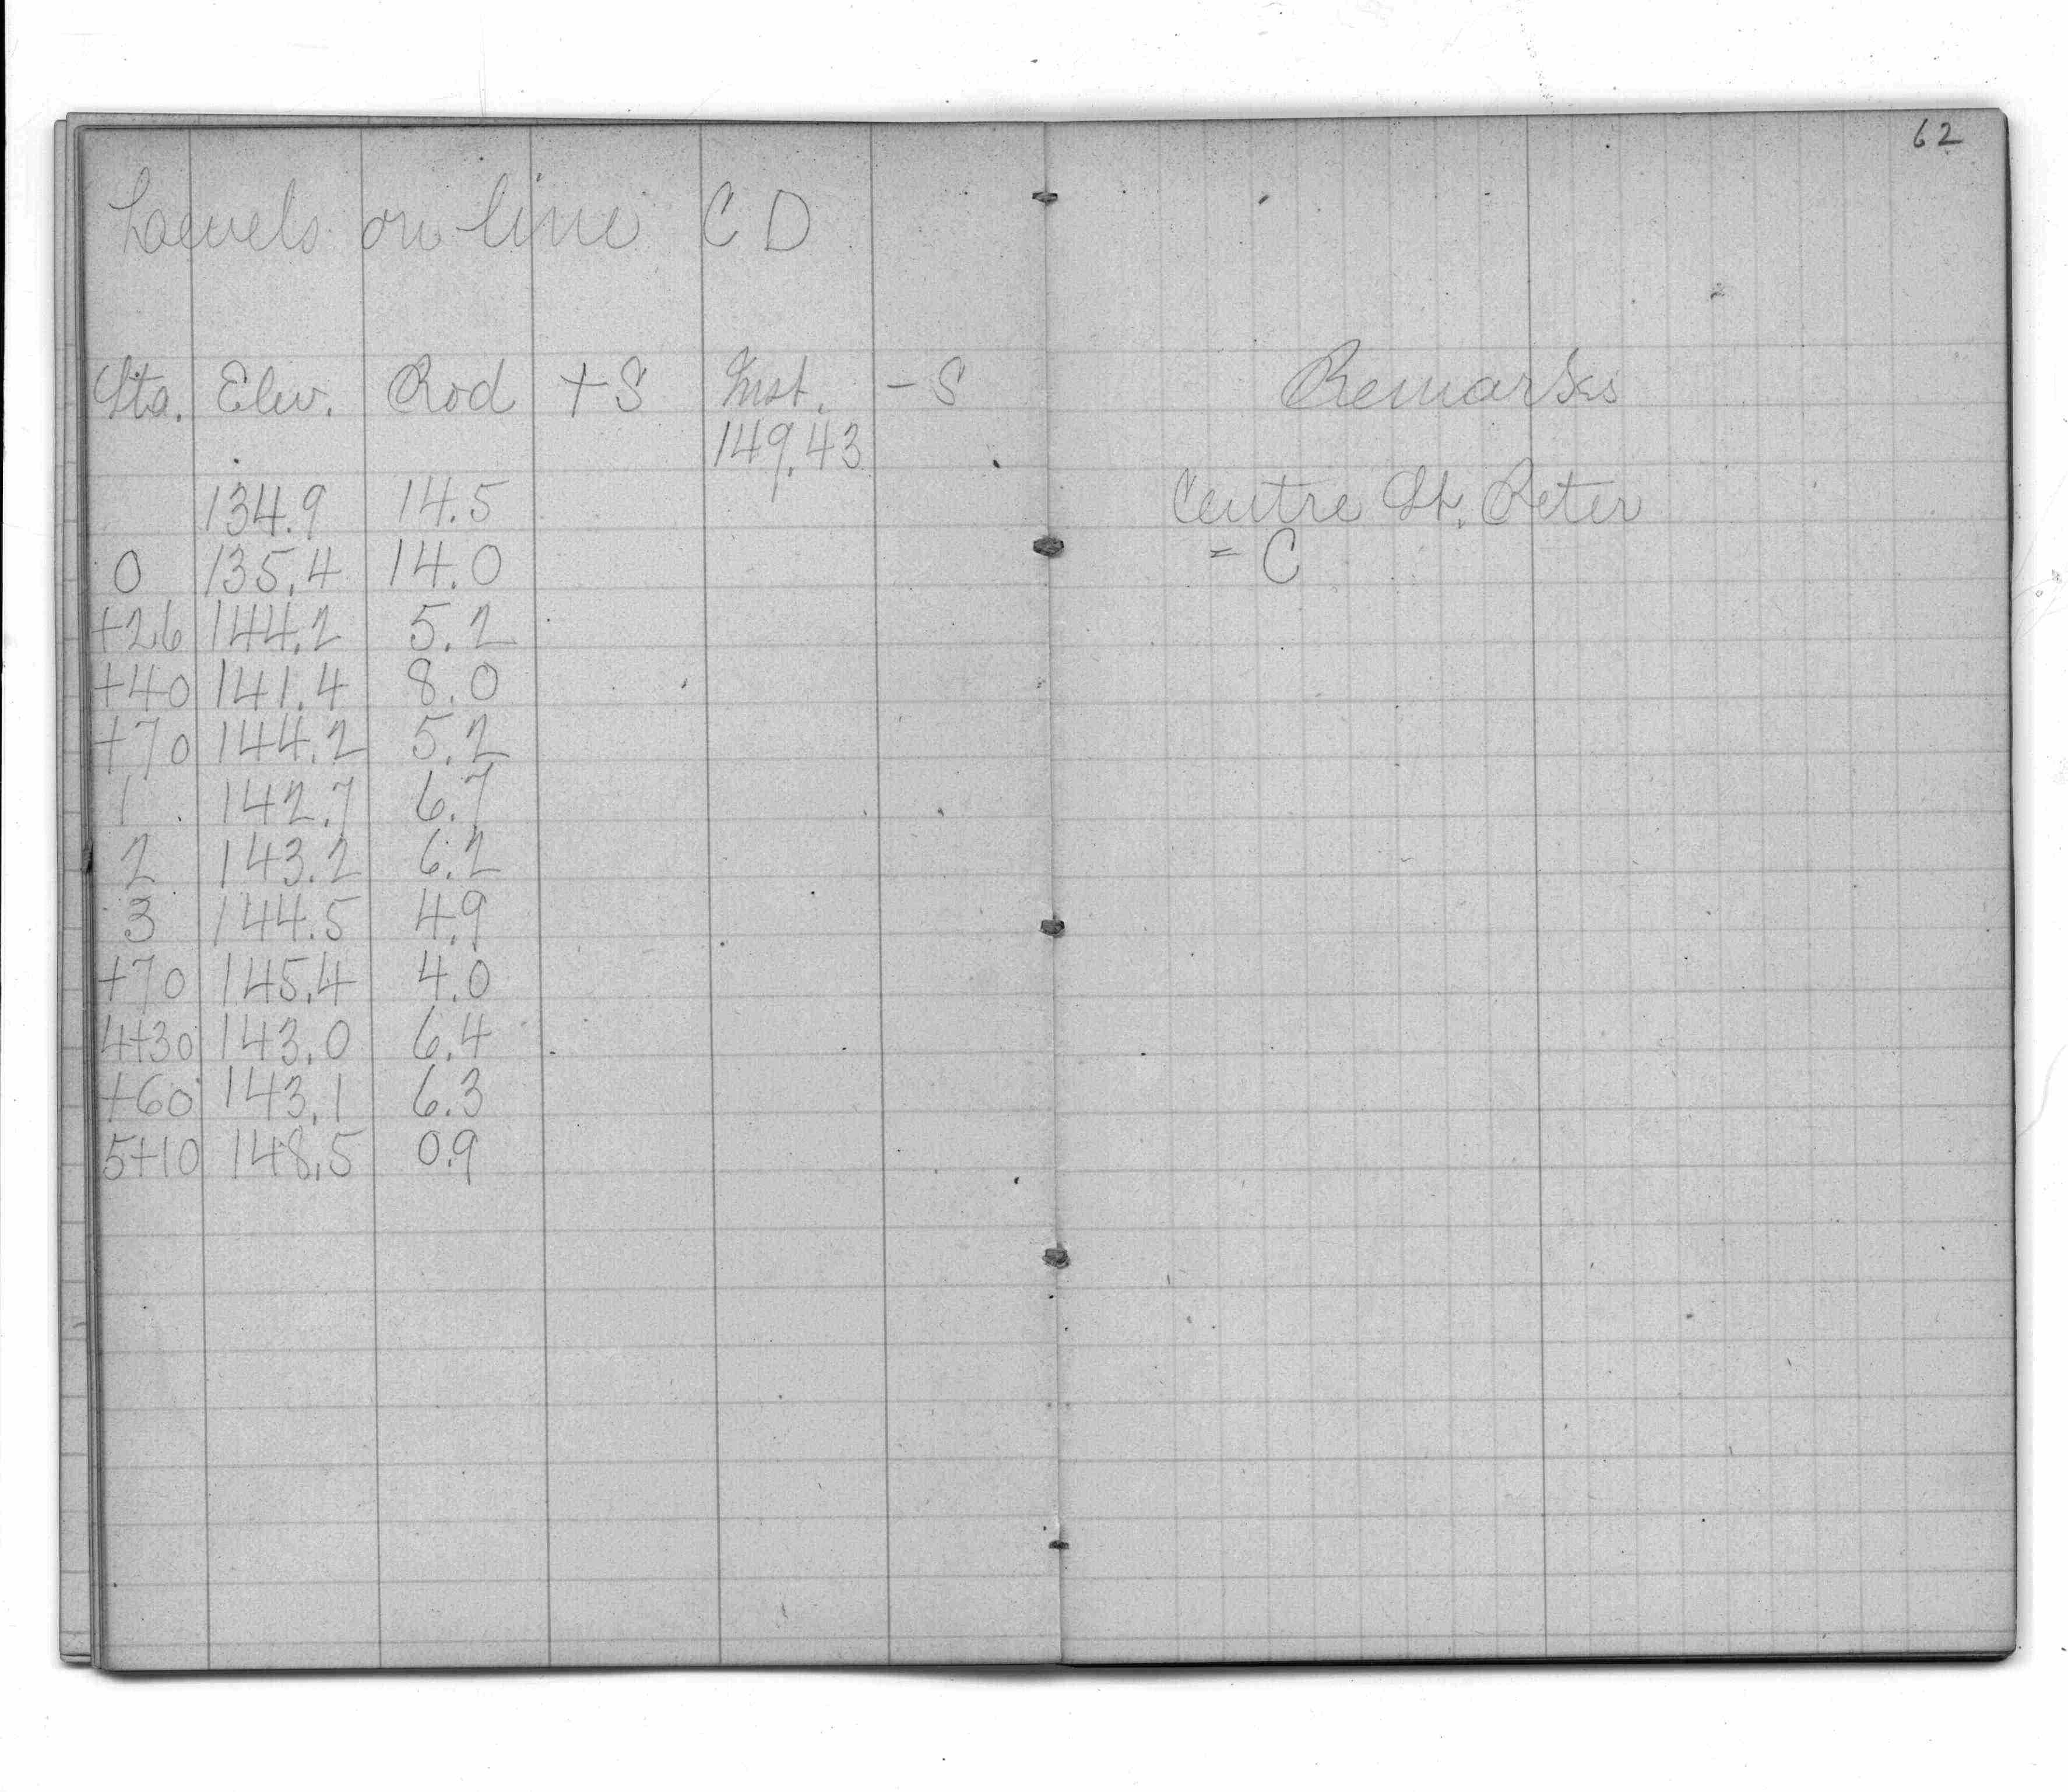 62
Levels on line C D
Sta. Elev. Rod +S Inst. -S Remarks
149.43
134.9 14.5 Centre St. Peter
0 135.4 14.0 = C
+26 144.2 5.2
+40 141.4 8.0
+70 144.2 5.2
1 142.7 6.7
2 143.2 6.2
3 144.5 4.9
+70 145.4 4.0
4+30 143.0 6.4
+60 143.1 6.3
5+10 148.5 0.9